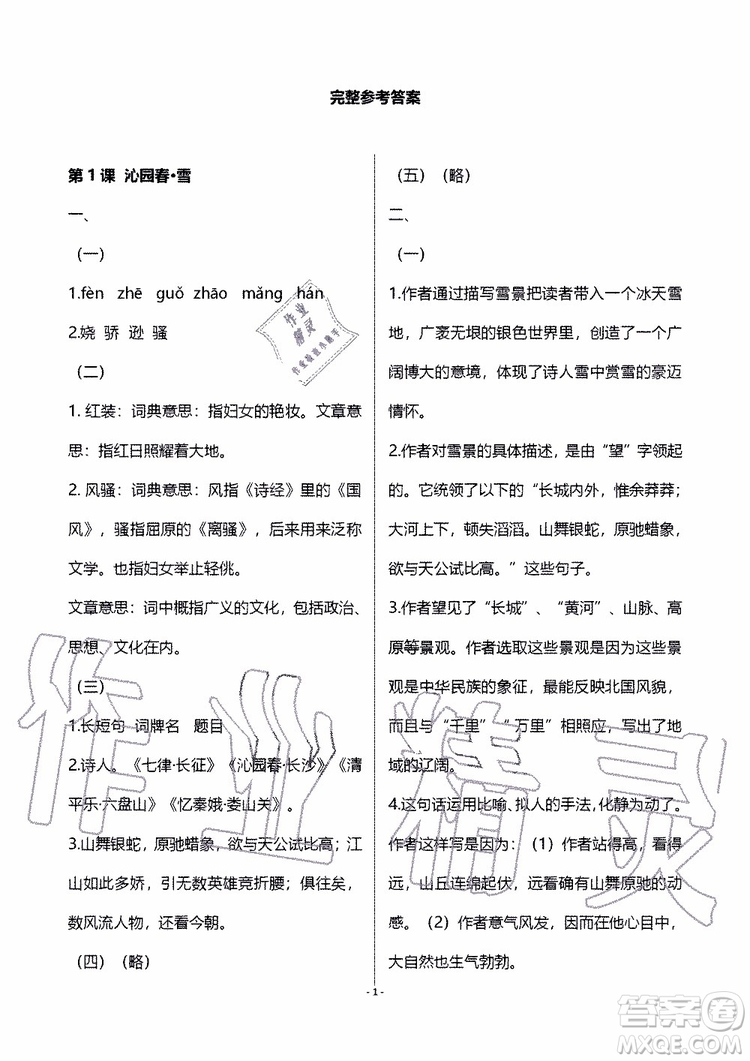 完整参考答案
第1课 沁园春•雪
一、
（一）
1.fèn zhē guǒ zhāo mǎng hán
2.娆 骄 逊 骚
（二）
1. 红装：词典意思：指妇女的艳妆。文章意
思：指红日照耀着大地。
2. 风骚：词典意思：风指《诗经》里的《国
风》，骚指屈原的《离骚》，后来用来泛称
文学。也指妇女举止轻佻。
文章意思：词中概指广义的文化，包括政治、
思想、文化在内。
（三）
1.长短句 词牌名 题目
2.诗人。《七律·长征》《沁园春·长沙》《清
平乐·六盘山》《忆秦娥·娄山关》。
3.山舞银蛇，原驰蜡象，欲与天公试比高；江
山如此多娇，引无数英雄竞折腰；俱往矣，
数风流人物，还看今朝。
（四）（略）
（五）（略）
二、
（一）
1.作者通过描写雪景把读者带入一个冰天雪
地，广袤无垠的银色世界里，创造了一个广
阔博大的意境，体现了诗人雪中赏雪的豪迈
情怀。
2.作者对雪景的具体描述，是由“望”字领起
的。它统领了以下的“长城内外，惟余莽莽；
大河上下，顿失滔滔。山舞银蛇，原驰蜡象，
欲与天公试比高。”这些句子。
3.作者望见了“长城”、“黄河”、山脉、高
原等景观。作者选取这些景观是因为这些景
观是中华民族的象征，最能反映北国风貌，
而且与“千里”“万里”相照应，写出了地
域的辽阔。
4.这句话运用比喻、拟人的手法，化静为动了。
作者这样写是因为：（1）作者站得高，看得
远，山丘连绵起伏，确有山舞原驰的动
感。（2）作者意气风发，因而在他心目中，
大自然也生气勃勃。
- 1 -
作业精灵
作业
精灵
作业精灵
答案圈
MXQE.COM